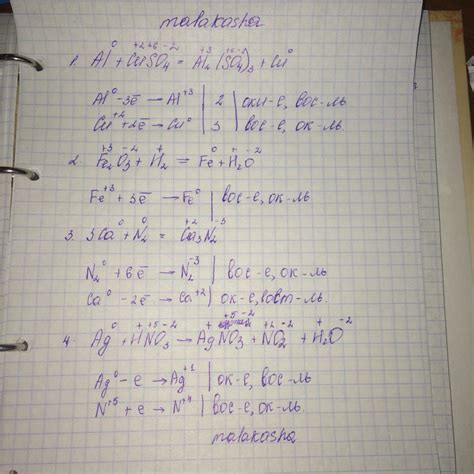 malakasha
1. Al⁰ + Cu⁺²S⁺⁶O₄⁻² = Al₂⁺³(S⁺⁶O₄⁻²)₃ + Cu⁰
Al⁰ - 3e̅ → Al⁺³ | 2 | оки-е, вос-ль
Cu⁺² + 2e̅ → Cu⁰ | 3 | вос-е, ок-ль.
2. Fe₂⁺³O₃⁻² + H₂ = Fe⁰ + H₂⁺O⁻²
Fe⁺³ + 3e̅ → Fe⁰ | вос-е, ок-ль
3. 3Ca⁰ + N₂⁰ = Ca₃⁺²N₂⁻³
N₂⁰ + 6e̅ → N₂⁻³ | вос-е, ок-ль
Ca⁰ - 2e̅ → Ca⁺² | ок-е, восст-ль.
4. Ag⁰ + H⁺N⁺⁵O₃⁻² → Ag⁺N⁺⁵O₃⁻² + N⁺²O₂⁻² + H₂⁺O⁻²
Ag⁰ - e → Ag⁺¹ | ок-е, вос-ль
N⁺⁵ + e → N⁺⁴ | вос-е, ок-ль.
malakasha